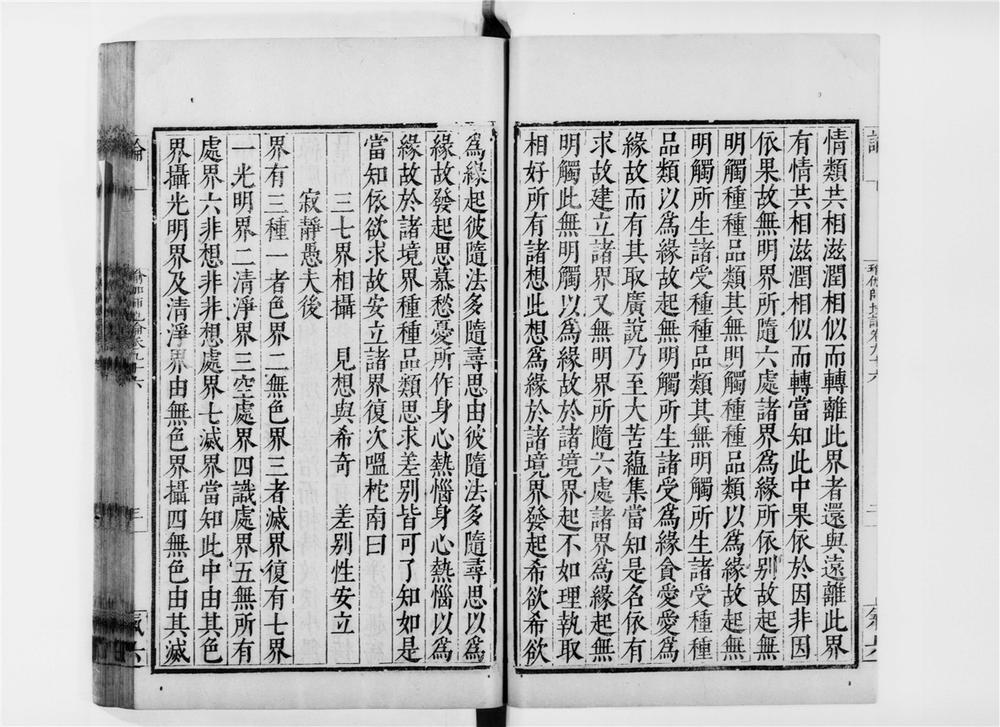 情類共相滋潤相似而轉離此界者還與遠離此界
有情共相滋潤相似而轉當知此中果依於因非因
依果故無明界所隨六處諸界為緣所依別故起無
明觸種種品類其無明觸種種品類以為緣故起無
明觸所生諸受種種品類其無明觸所生諸受種種
品類以為緣故起無明觸所生諸受為緣貪愛愛為
緣故而有其取廣說乃至大苦蘊集當知是名依有
求故建立諸界又無明界所隨六處諸界為緣起無
明觸此無明觸以為緣故於諸境界起不如理執取
相好所有諸想此想為緣於諸境界發起希欲希欲
為緣起彼隨法多隨尋思由彼隨法多隨尋思以為
緣故發起思慕愁憂所作身心熱惱身心熱惱以為
緣故於諸境界種種品類思求差別皆可了知如是
當知依欲求故安立諸界復次嗢柁南曰
三七界相攝　見想與希奇　差別性安立
寂靜愚夫後
界有三種一者色界二無色界三者滅界復有七界
一光明界二清淨界三空處界四識處界五無所有
處界六非想非非想處界七滅界當知此中由其色
界攝光明界及清淨界由無色界攝四無色由其滅